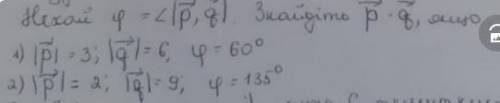 Нехай φ = ∠|p⃗, q⃗|. Знайдіть p⃗ · q⃗, якщо
1) |p⃗| = 3; |q⃗| = 6, φ = 60°
2) |p⃗| = 2; |q⃗| = 9; φ = 135°